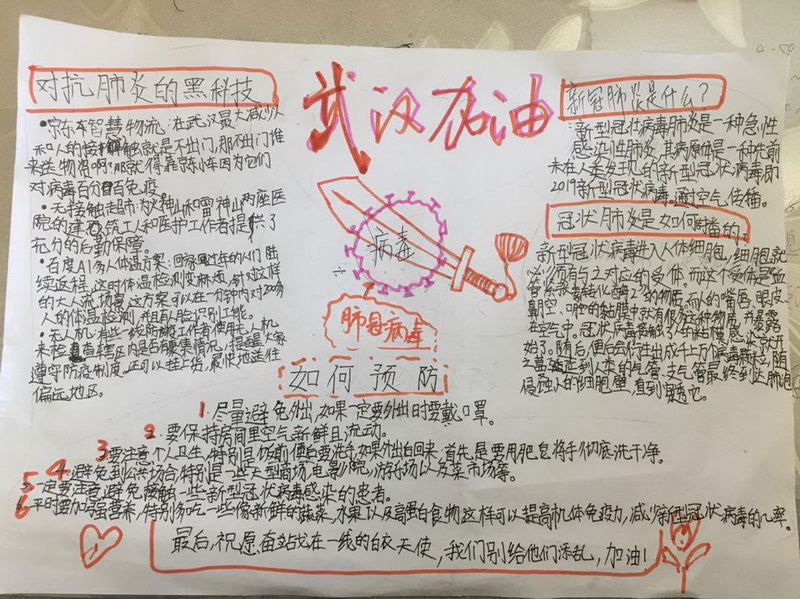 武汉加油
对抗肺炎的黑科技
•京东智慧物流:在武汉最大减少人
和人的接触就是不出门,那不出门谁
来送物资啊?那就得靠京东小车因为它们
对病毒百分百免疫
•无接触超市:为火神山和雷神山两座医
院的建筑工人和医护工作者提供了
充分的后勤保障。
•百度AI多人体温方案:回家过年的人们陆
续返程,这时体温检测变麻烦,针对这样
的大人流场景这方案可以在一分钟内对200多
人的体温检测,并且有人脸识别功能。
•无人机:有些一线防疫工作者使用无人机
来检查辖区内是否有聚集情况,提醒大家
遵守防疫制度,还可以挂上货,最快地送往
偏远地区。
病毒
肺冠病毒
新冠肺炎是什么?
新型冠状病毒肺炎是一种急性
感染性肺炎,其病原体是一种先前
未在人类发现的新型冠状病毒即
2019新型冠状病毒。通过空气传播。
冠状肺炎是如何传播的
新型冠状病毒进入人体细胞,细胞就
必须有与之对应的受体。而这个受体是血
管紧张素转化酶2的物质。而人的嘴唇、眼皮、
口腔的黏膜中就有很多这种物质,并暴露
在空气中。冠状病毒接触了人的黏膜,感染就开
始了。随后,便后会衍生出成千上万个病毒颗粒,随
之蔓延到人类的气管、支气管最终到达肺泡
侵蚀人的细胞壁,直到穿透它。
如何预防
1.尽量避免外出,如果一定要外出时要戴口罩。
2.要保持房间里空气新鲜且流动。
3要注意个人卫生,特别是饭前便后要洗手,如果外出回来,首先是要用肥皂将手彻底洗干净。
4.避免到公共场合,特别是一些大型商场、电影院、游乐场以及菜市场等。
5一定要注意避免接触一些新型冠状病毒感染的患者。
6平时要加强营养,特别多吃一些像新鲜的蔬菜,水果以及高蛋白食物这样可以提高机体免疫力,减少新型冠状病毒的几率。
最后,祝愿奋战在一线的白衣天使,我们别给他们添乱,加油!